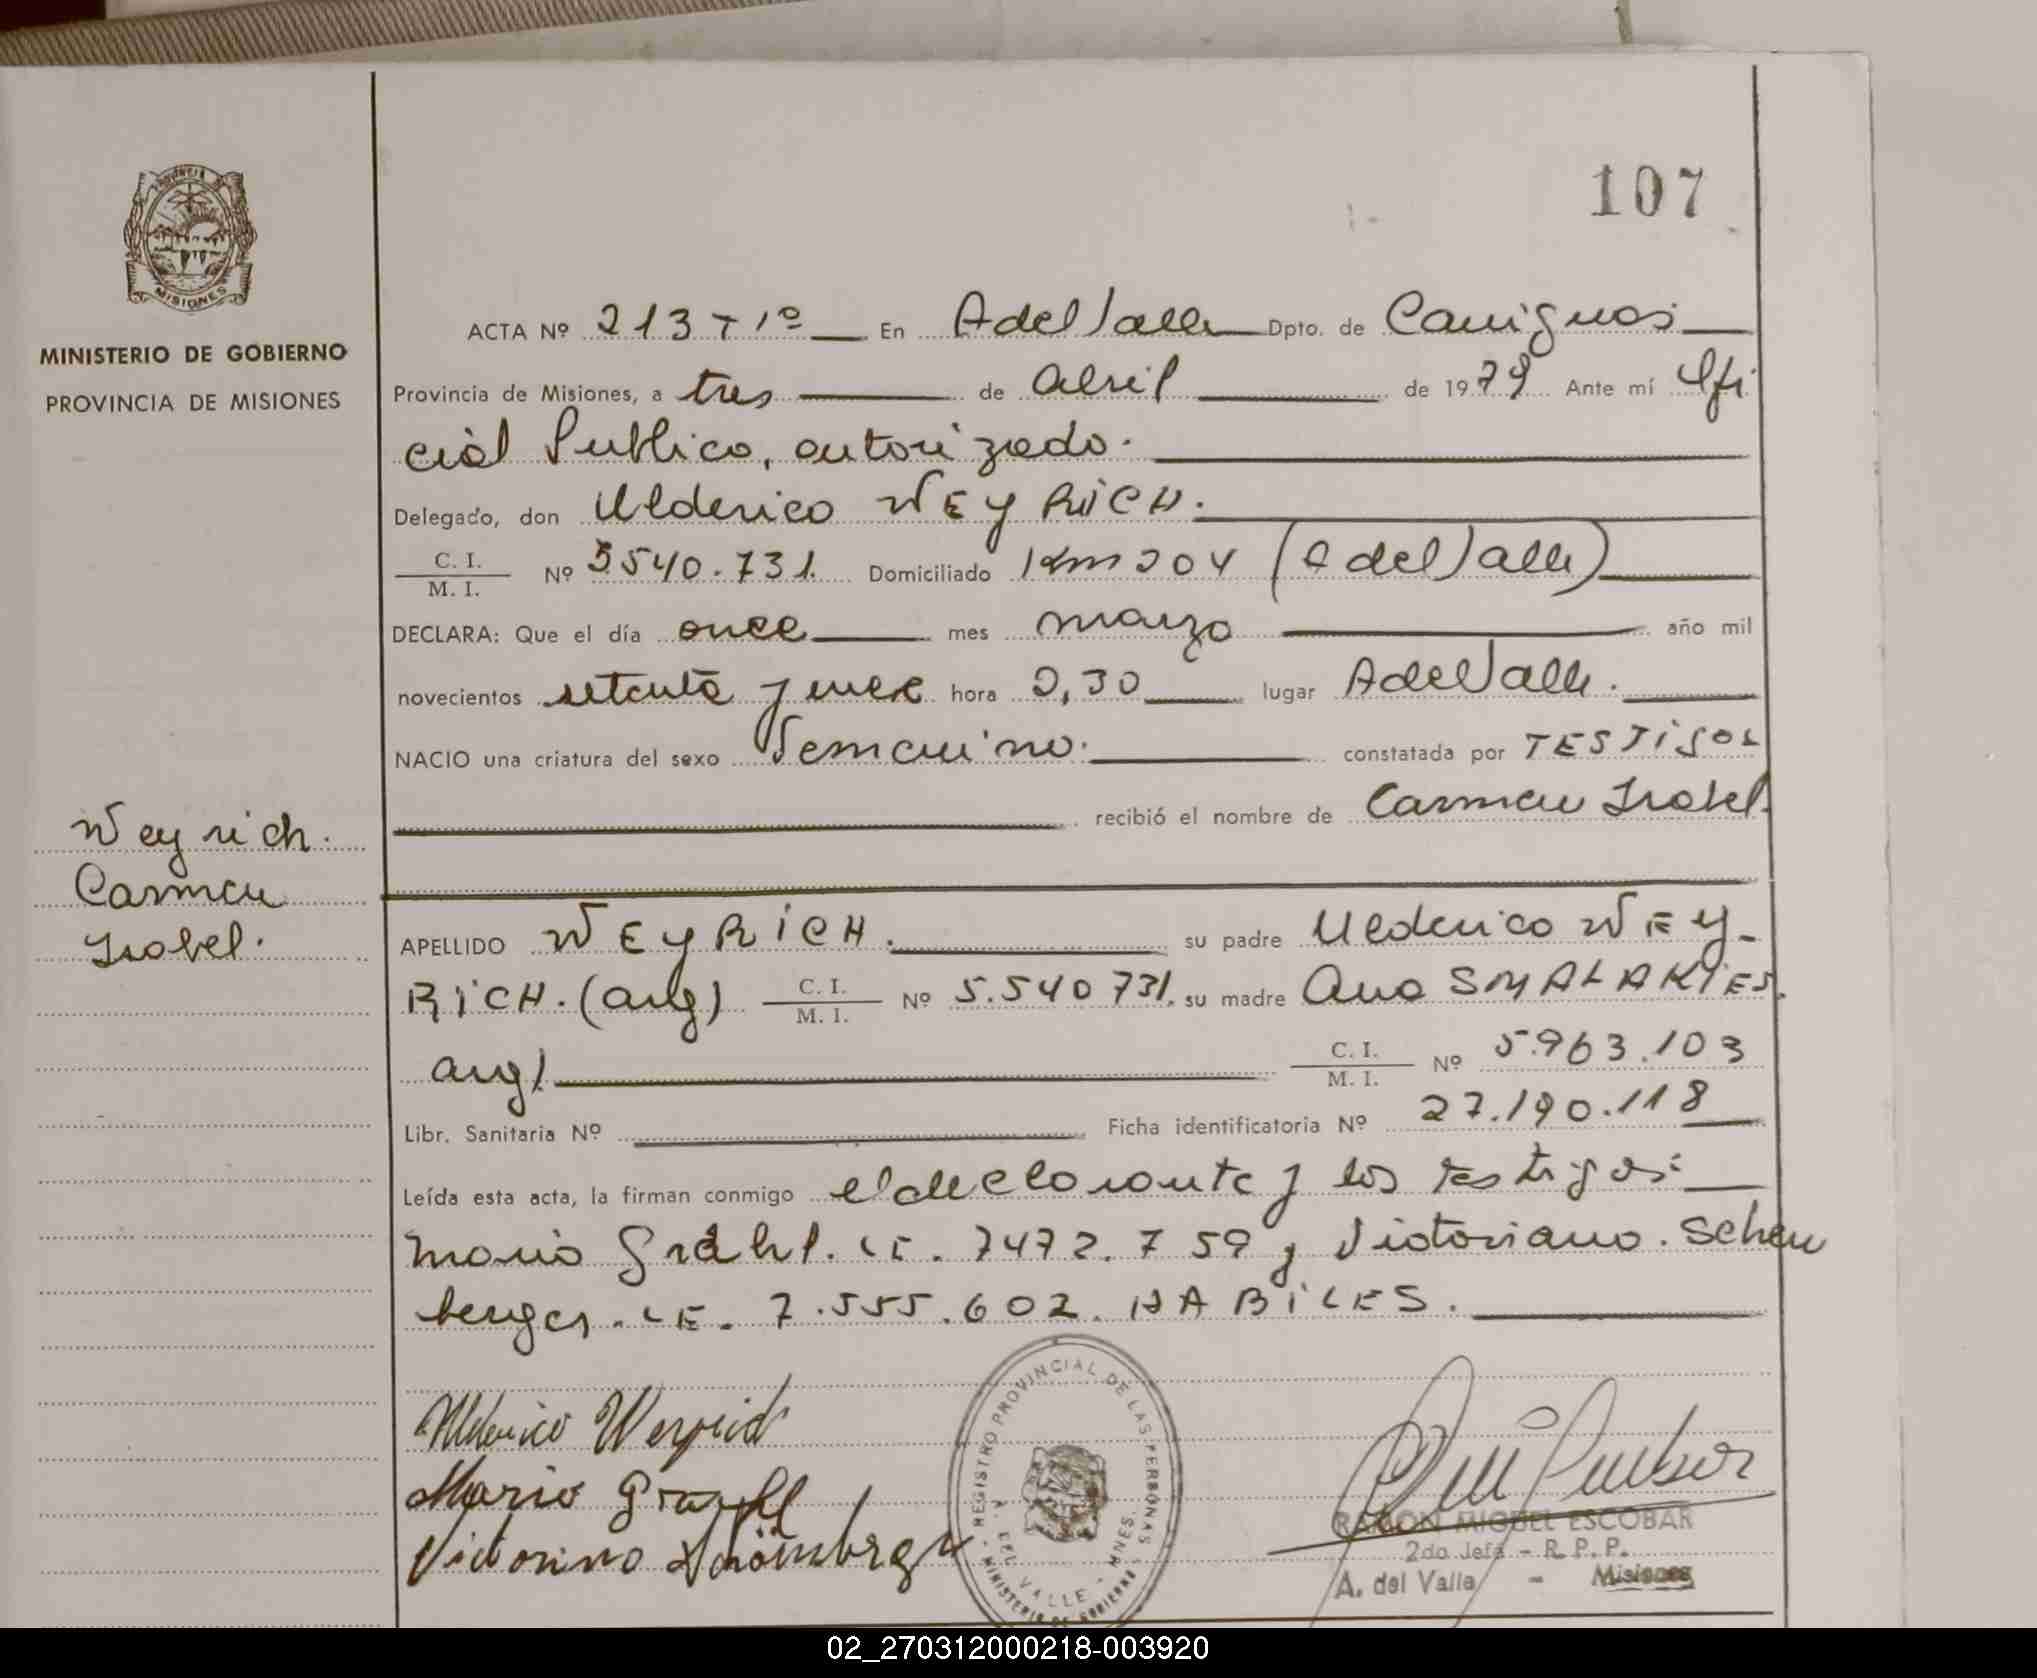 107
MINISTERIO DE GOBIERNO
PROVINCIA DE MISIONES
MISIONES
ACTA Nº 213 T 1º En A del Valle Dpto. de Cainguas
Provincia de Misiones, a tres de abril de 1979 Ante mí Ofi
cial Publico, autorizado.
Delegado, don Ulderico WEYRICH.
C. I.
M. I.
Nº 5540.731. Domiciliado Km 204 (A del Valle)
DECLARA: Que el día once mes marzo año mil
novecientos setenta y nueve hora 2,30 lugar A del Valle.
NACIO una criatura del sexo Femenino. constatada por TESTIGOS
recibió el nombre de Carmen Isabel.
Weyrich.
Carmen
Isabel.
APELLIDO WEYRICH. su padre Ulderico WEY-
RICH. (arg) C. I. M. I. Nº 5.540731. su madre Ana SMALAKIES.
arg) C. I. M. I. Nº 5.963.103
Libr. Sanitaria Nº Ficha identificatoria Nº 27.190.118
Leída esta acta, la firman conmigo el declarante y los testigos:
Mario Grahl. LE. 7472.759 y Victoriano. Schen
berger. LE. 7.555.602. HABILES.
Ulderico Weyrich
Mario Grahl
REGISTRO PROVINCIAL DE LAS PERSONAS
A. DEL VALLE - MNES.
MINISTERIO DE GOBIERNO
RAMON MIGUEL ESCOBAR
2do Jefe - R. P. P.
A. del Valle - Misiones
02_270312000218-003920